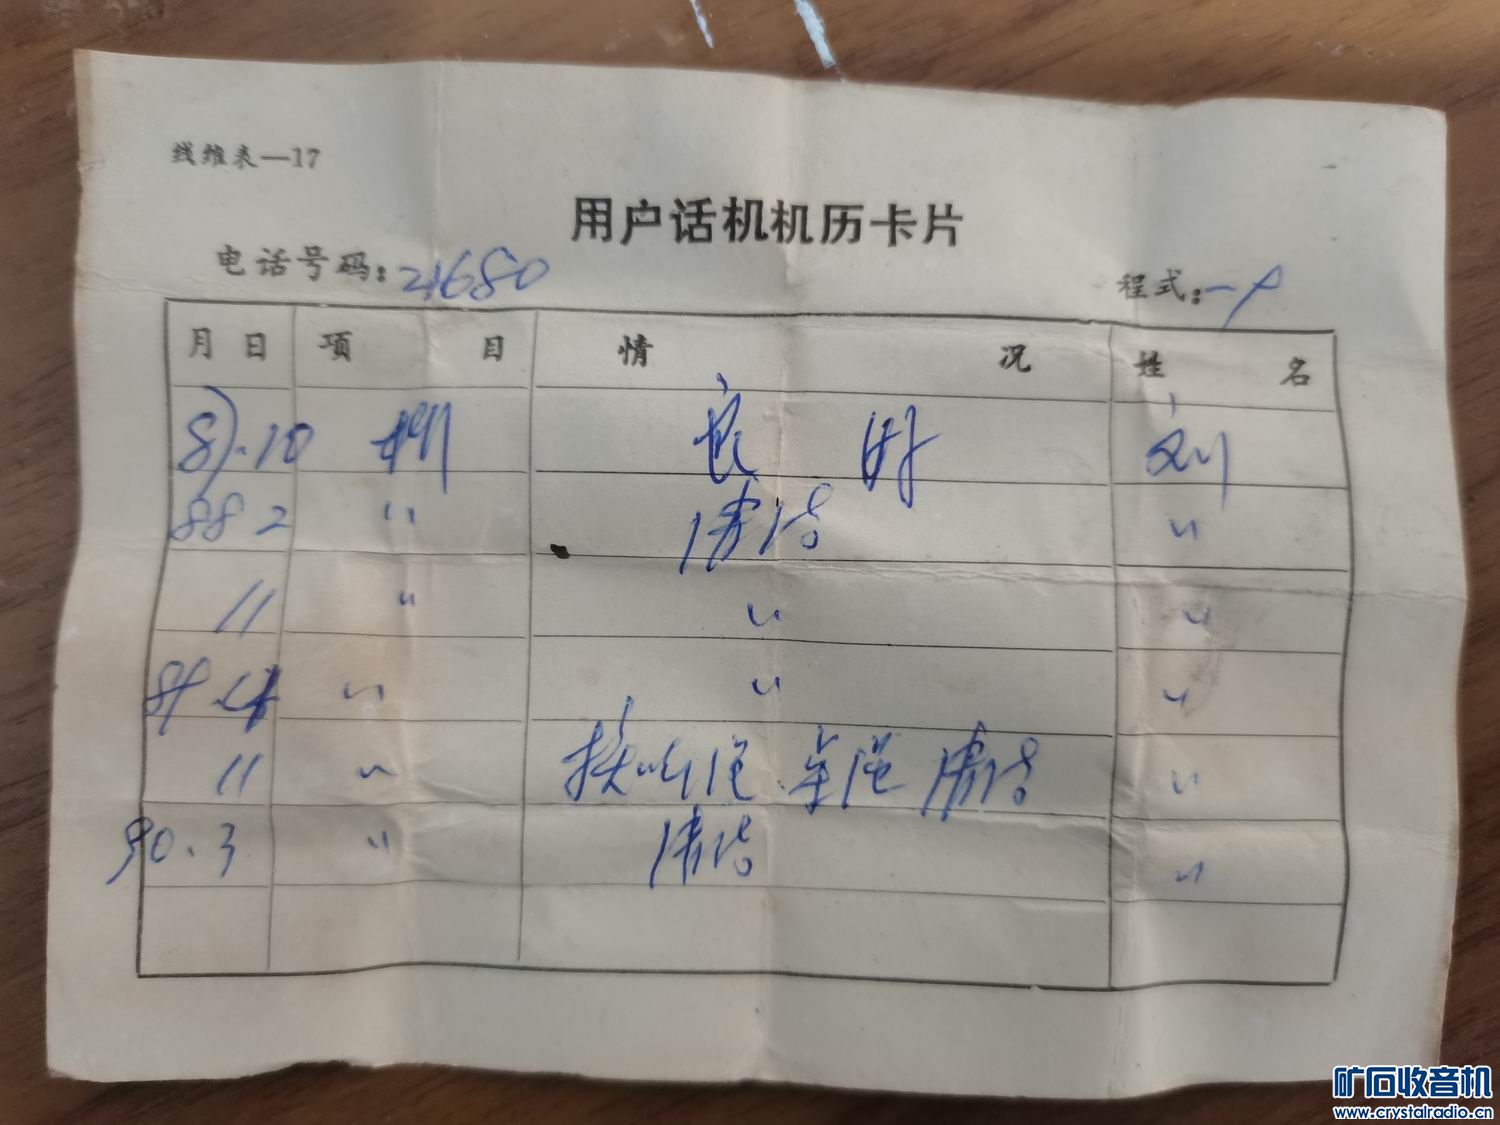 线维表—17
用户话机机历卡片
电话号码：21680
程式：
月 日 项 目 情 况 姓 名
87.10 良好 刘
88 2 〃 清洁 〃
11 〃 〃 〃
〃 〃 〃
11 〃 清洁 〃
90.3 〃 清洁 〃
矿石收音机
www.crystalradio.cn